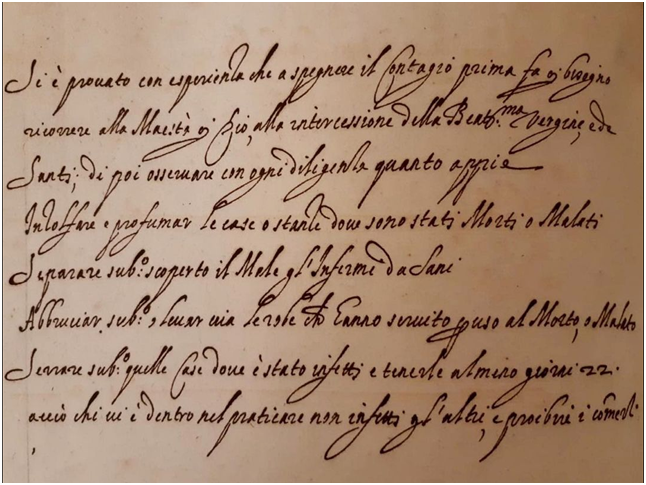 Si è prouato con esperienza che a spegnere il Contagio prima fa di bisogno
ricorrere alla Maestà di Dio, alla intercessione della Beat.ma Vergine, e de
Santi; di poi osseruare con ogni diligenza quanto appie
Inzolfare e profumar le case o stanze doue sono stati Morti o Malati
Separare sub.o scoperto il Male gl'Infermi da Sani
Abbruciar sub.o, o leuar uia le robe ch Hanno seruito p uso al Morto, o Malato
Serrare sub.o quelle Case doue è stato infetti e tenerle almeno giorni 22.
acciò chi ui è dentro nel praticare non infetti gl'altri, e proibire i comerli